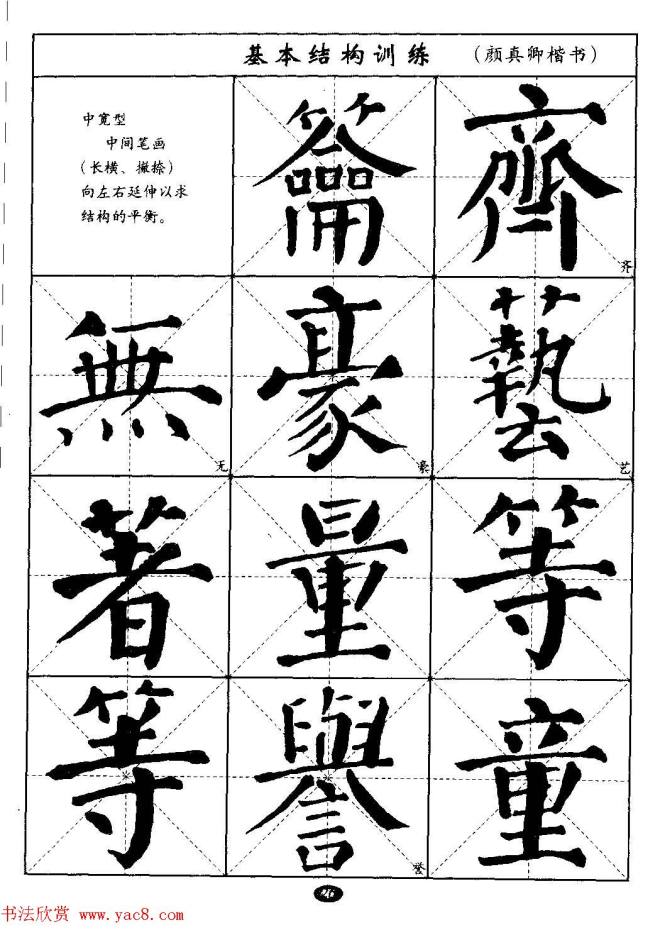 基本结构训练 (颜真卿楷书)
中宽型
中间笔画
(长横、撇捺)
向左右延伸以求
结构的平衡。
籥 齊 齐
無 无 豪 豪 藝 艺
著 量 等
等 譽 誉 童
26
书法欣赏 www.yac8.com